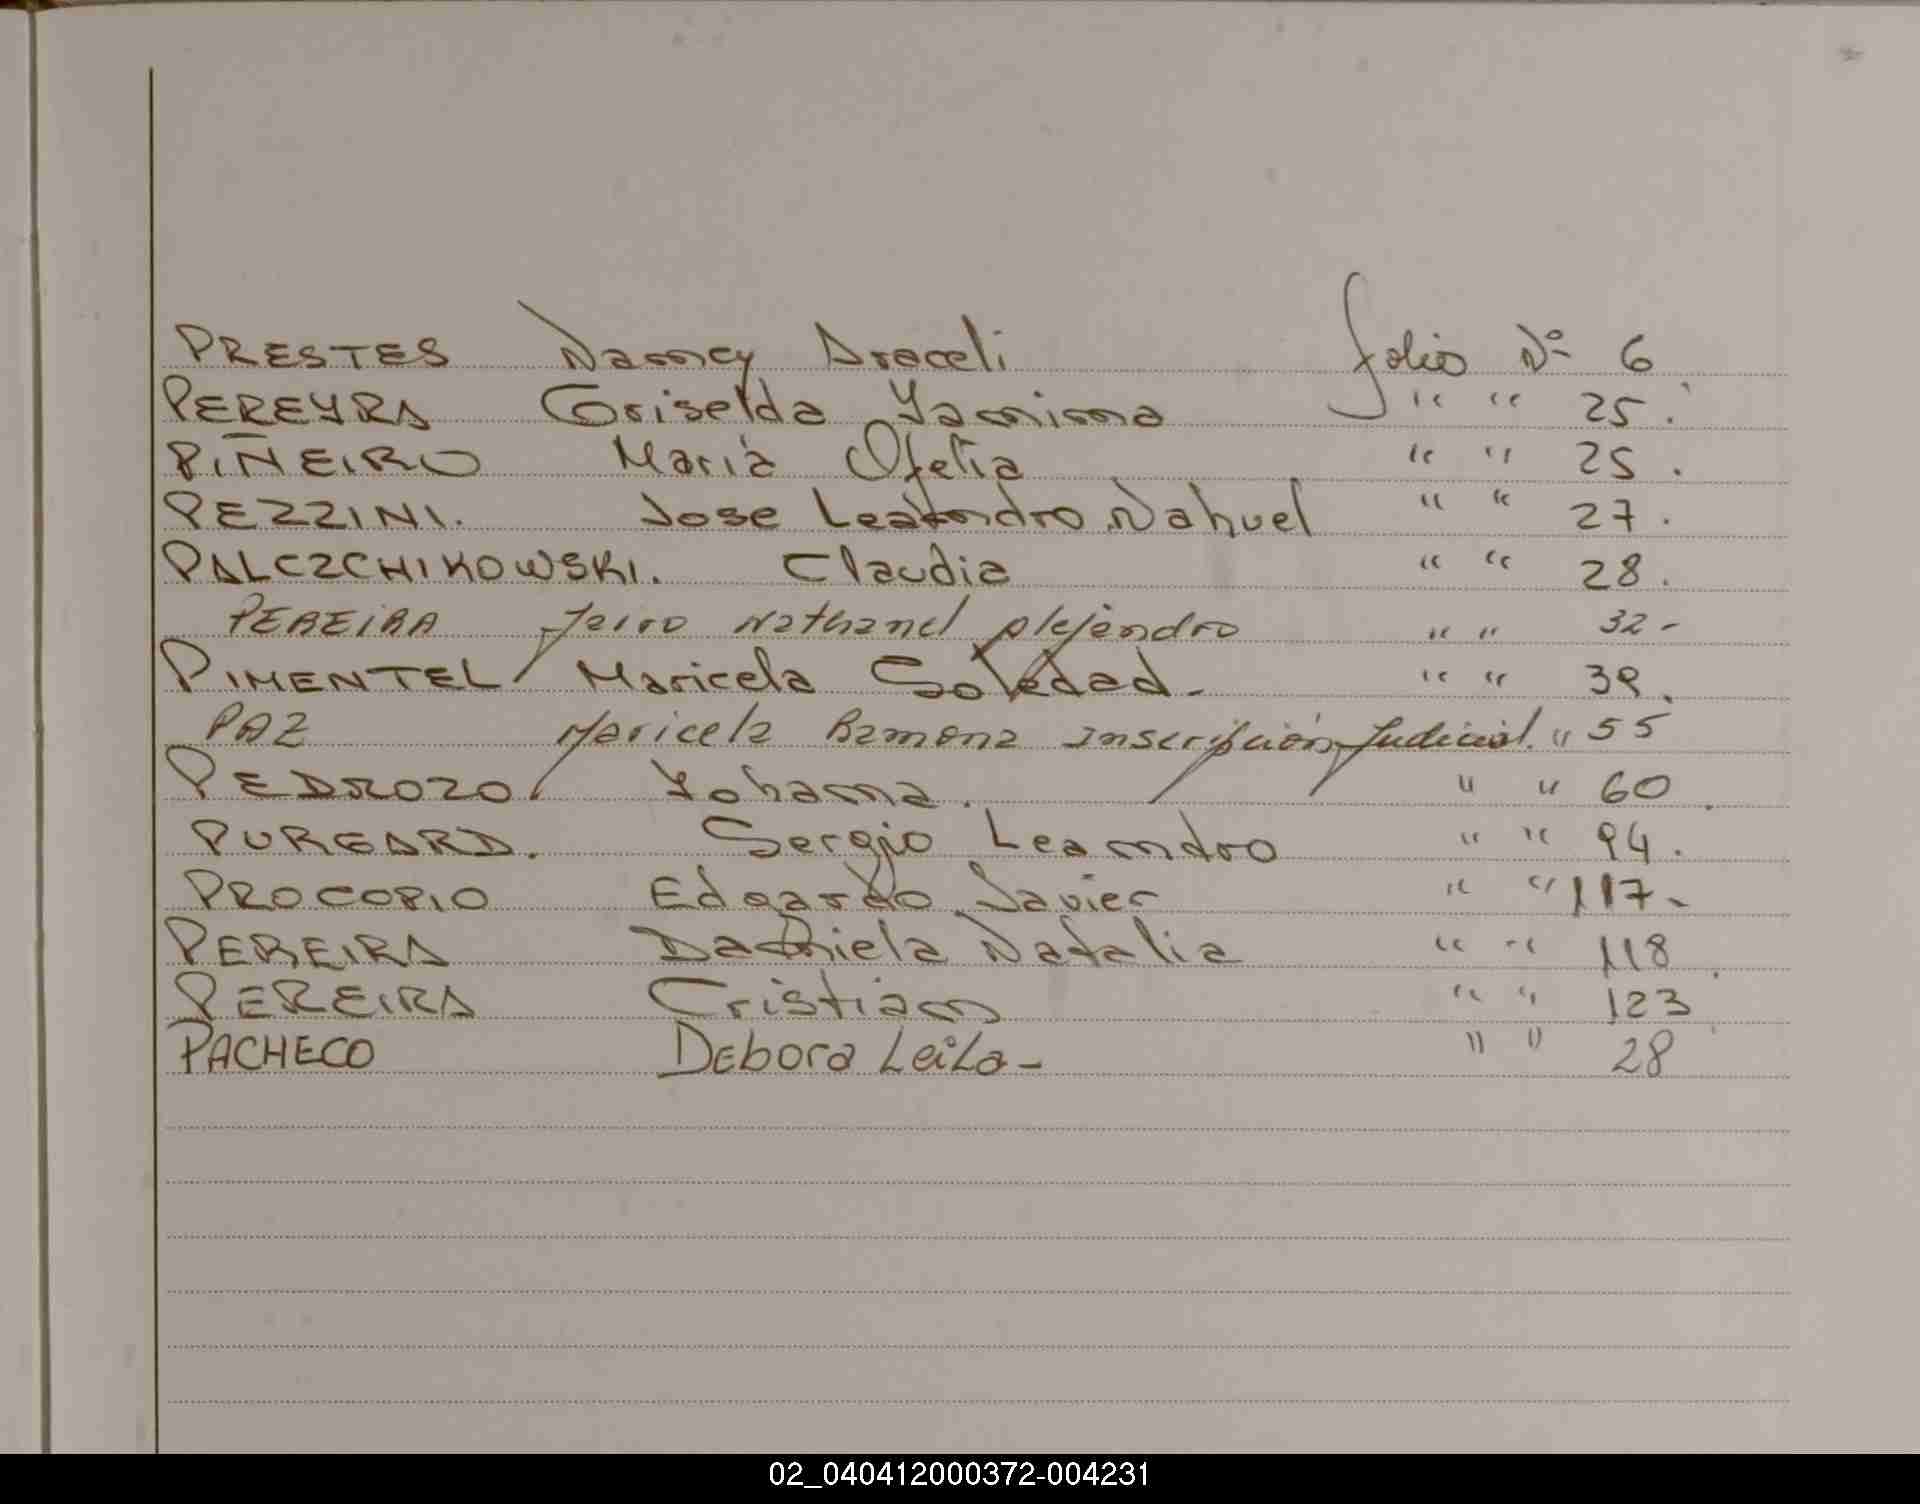 PRESTES Nancy Araceli folio Nº 6
PEREYRA Griselda Yanina " " 25.
PIÑEIRO Maria Ofelia " " 25.
PEZZINI. Jose Leandro Nahuel " " 27.
PALCZCHIKOWSKI. Claudia " " 28.
PEREIRA Jairo Nathanel Alejandro " " 32-
PIMENTEL Maricela Soledad. " " 39.
PAZ Maricela Ramona Inscripción Judicial. " 55
PEDROZO Yohana. " " 60.
PURGARD. Sergio Leandro " " 94.
PROCOPIO Edgardo Javier " " 117-
PEREIRA Daniela Natalia " " 118.
PEREIRA Cristian " " 123
PACHECO Debora Leila- " " 28
02_040412000372-004231